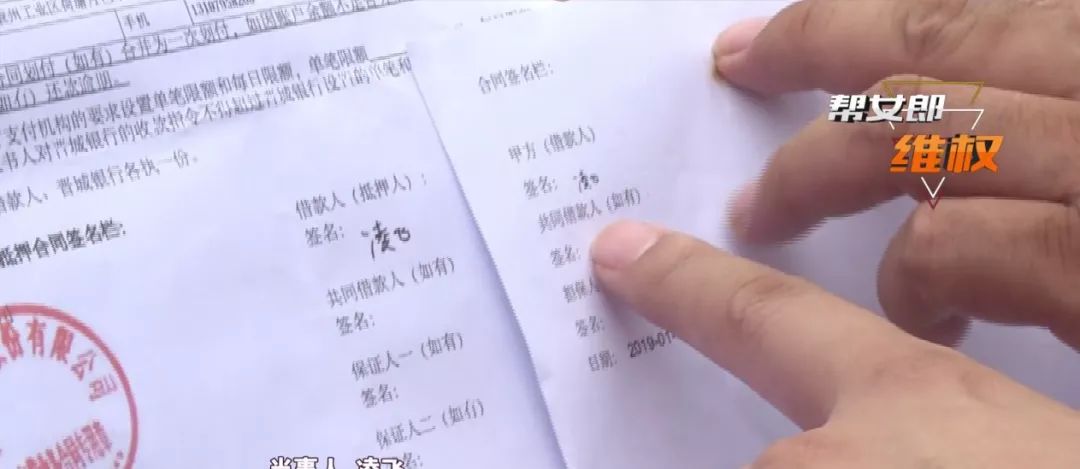 手机
合同划付（如有）合并为一次划付，如因账户余额不足
支付机构的要求设置单笔限额和每日限额，单笔限额
书人对晋城银行的收款指令不得超过晋城银行设置的单笔和
借款人、晋城银行各执一份。
抵押合同签名栏：
借款人（抵押人）：
签名：凌飞
共同借款人（如有）
签名：
保证人一（如有）
签名：
保证人二（如有）
签名：
份有限公司
合同签名栏：
甲方（借款人）
签名：凌飞
共同借款人（如有）
签名：
担保人
签名：
日期：2019-01-
帮女郎
维权
当事人 凌飞